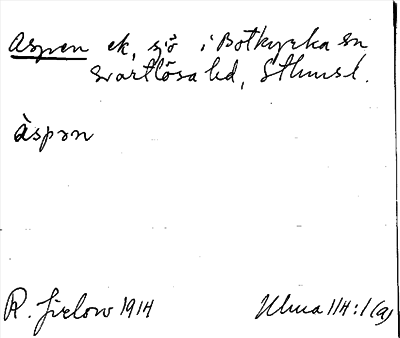 Aspen ek, sjö i Botkyrka sn
Svartlösa hd, Sthmsl.
àspən
R. Jirlow 1914
Ulma 114:1(a)